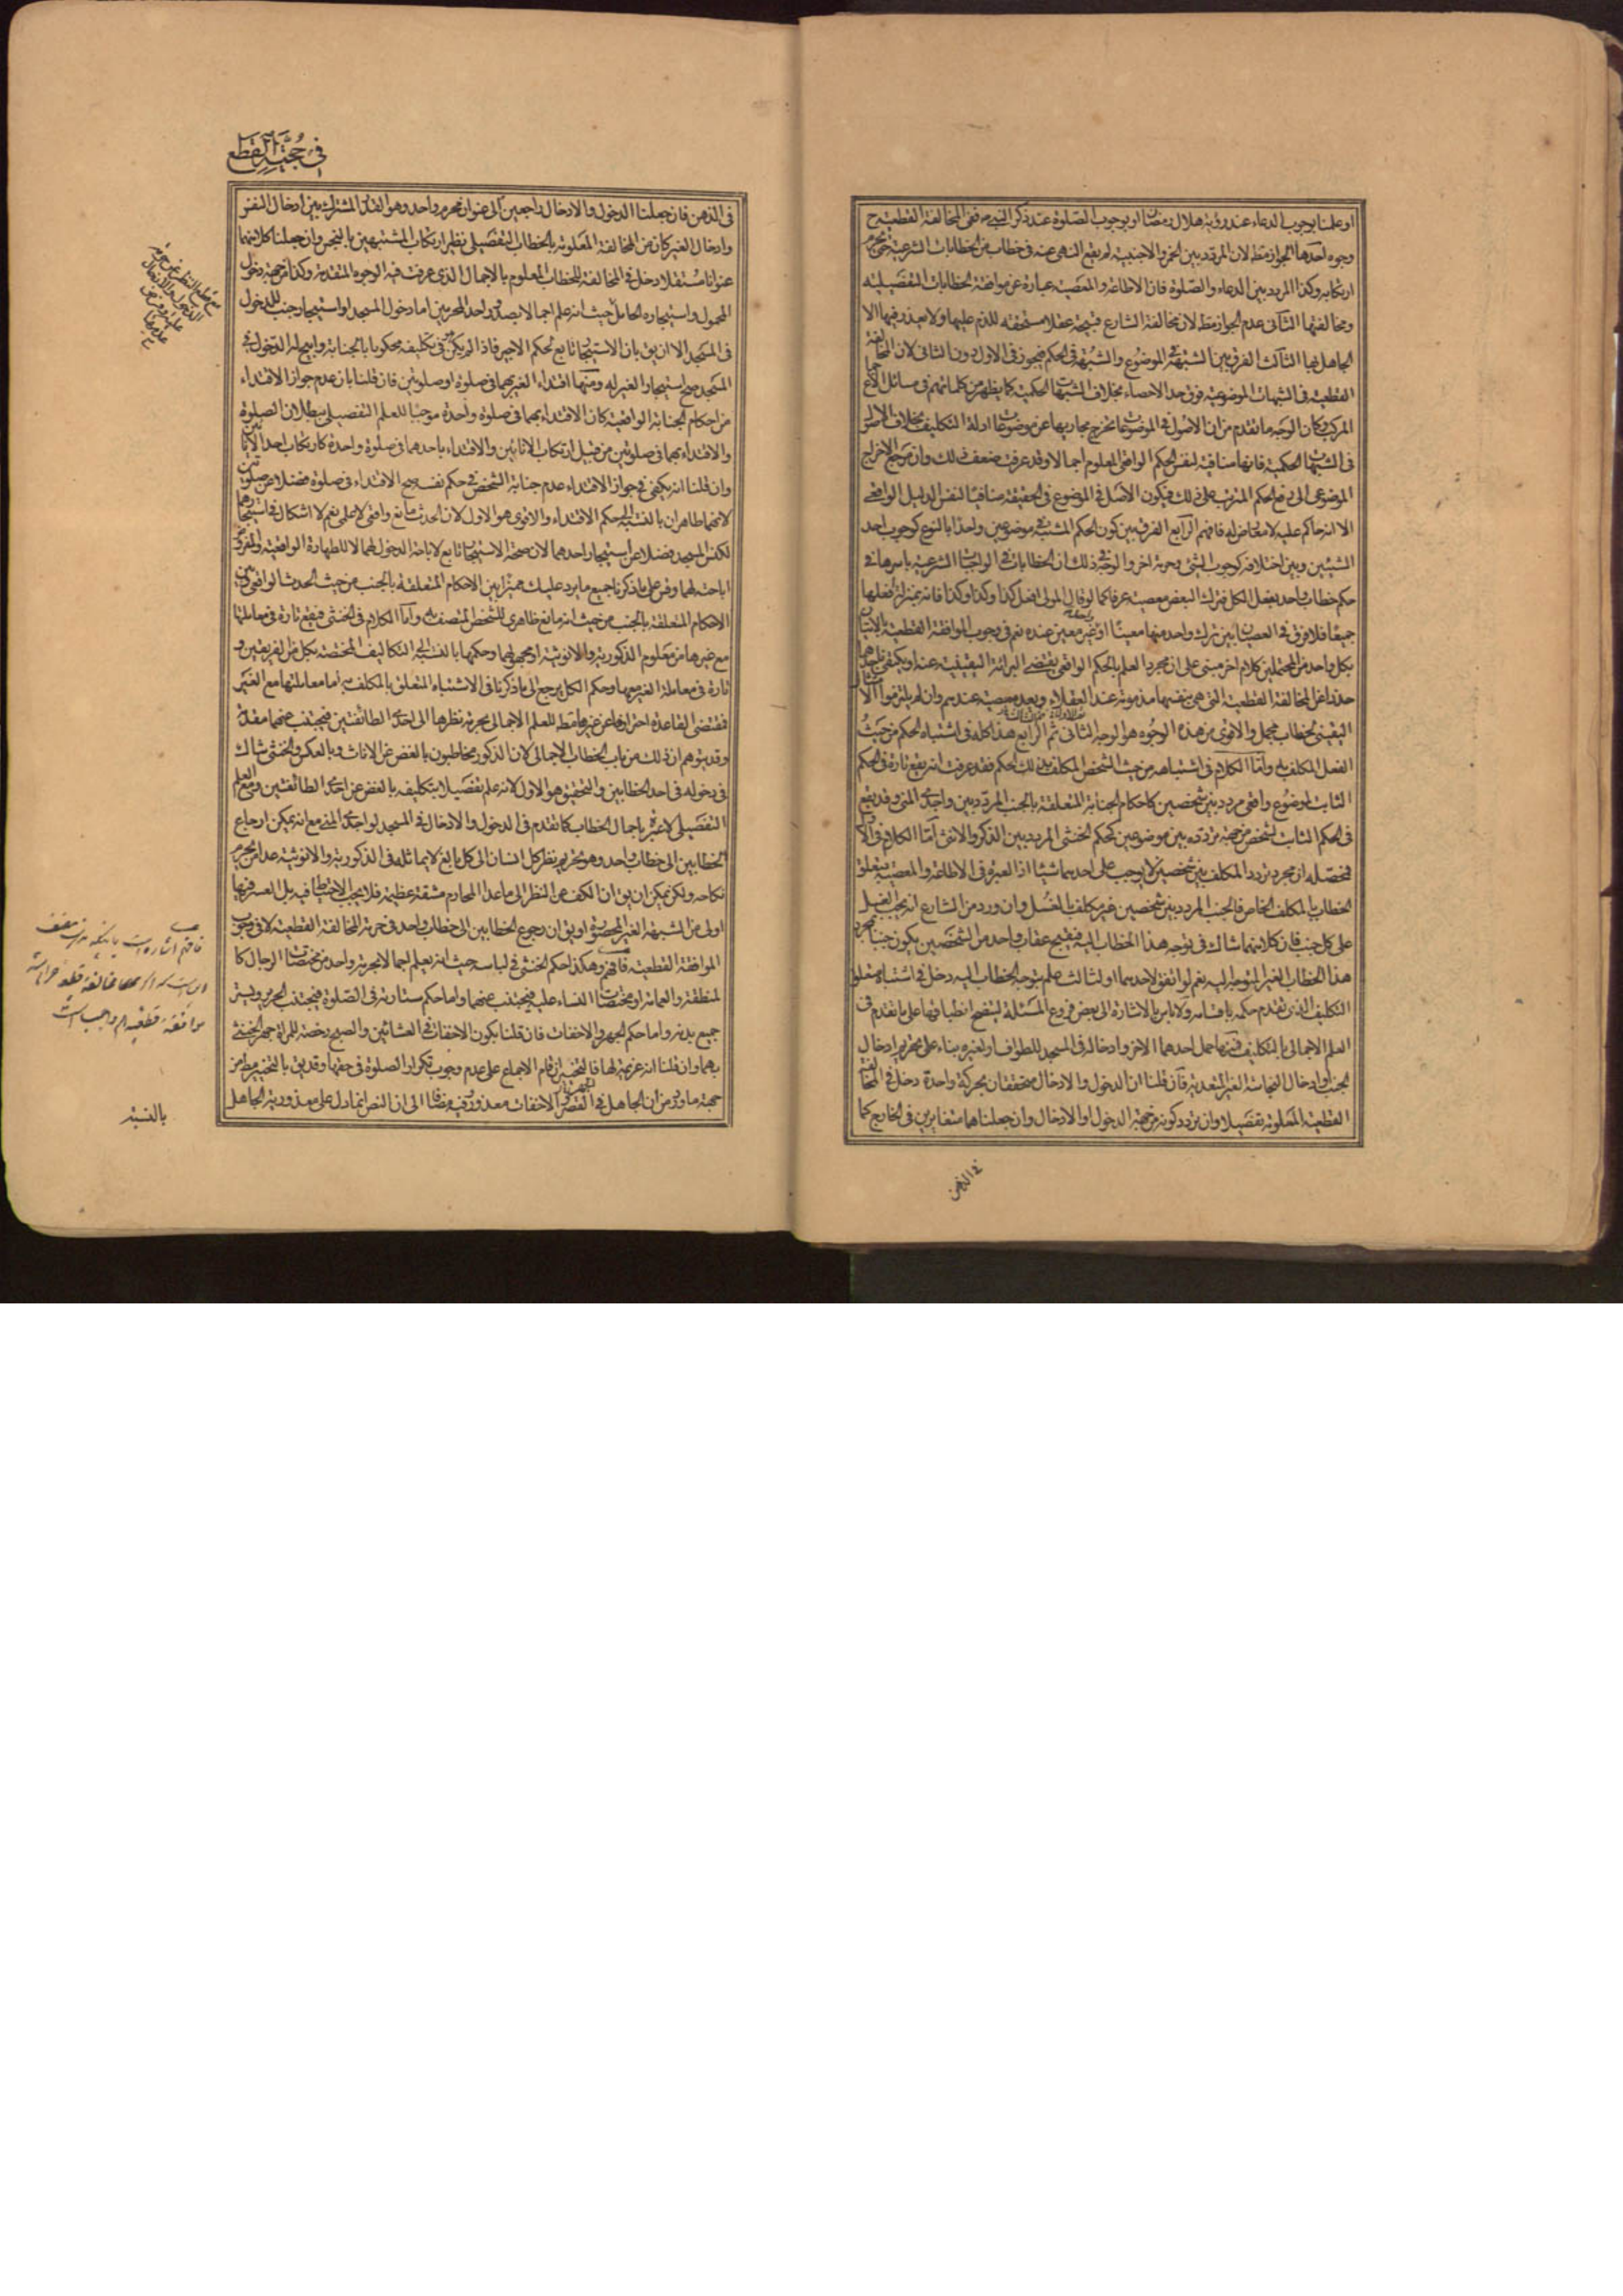 او علمنا بوجوب الدعاء عند رؤية هلال رمضان او بوجوب الصلوة عند ذكر النبى ففى المخالفة القطعية ح
وجوه احدها الجواز مط لان المردد بين الخمر والاجنبية لم يقع النهى عنه فى خطاب من الخطابات الشرعية حتى يحرم
ارتكابه وكذا المردد بين الدعاء والصلوة فان الاطاعة والمعصية عبارة عن موافقة الخطابات التفصيلية
ومخالفتها الثانى عدم الجواز مط لان مخالفة الشارع قبيحة عقلا مستحقة للذم عليها ولا يعذر فيها الا
الجاهل بها الثالث الفرق بين الشبهة فى الموضوع والشبهة فى الحكم فيجوز فى الاول دون الثانى لان المخالفة
القطعية فى الشبهات الموضوعية فوق حد الاحصاء بخلاف الشبهات الحكمية كما يظهر من كلماتهم فى مسائل الاجماع
المركب وكان الوجه ما تقدم من ان الاصول فى الموضوعات تخرج مجاريها عن موضوعات ادلة التكليف بخلاف الاصول
فى الشبهات الحكمية فانها منافية لنفس الحكم الواقعى المعلوم اجمالا وقد عرفت ضعف ذلك وان مرجع الاخراج
الموضوعى الى رفع الحكم المترتب على ذلك فيكون الاصل فى الموضوع فى الحقيقة منافيا لنفس الدليل الواقعى
الا انه حاكم عليه لا معارض له فافهم الرابع الفرق بين كون الحكم المشتبه فى موضوعين واحدا بالنوع كوجوب احد
الشيئين وبين اختلافه كوجوب الشئ وحرمة اخر والوجه فى ذلك ان الخطابات فى الواجبات الشرعية باسرها فى
حكم خطاب واحد بفعل الكل فترك البعض معصية عرفا كما لو قال المولى افعل كذا وكذا وكذا فانه بمنزلة افعلها
جميعا فلا فرق فى العصيان بين ترك واحد منها معينا او غير معين عنده نعم فى وجوب الموافقة القطعية بالاتيان
بكل واحد من المحتملين كلام اخر مبنى على ان مجرد العلم بالحكم الواقعى يقتضى البرائة اليقينية عنه او يكتفى باحدهما
حذرا عن المخالفة القطعية التى هى بنفسها مذمومة عند العقلاء ويعد معصية عندهم وان لم يلتزموا الامتثال
اليقينى لخطاب مجمل والاقوى من هذه الوجوه هو الوجه الثانى ثم الرابع هذا كله فى اشتباه الحكم من حيث
الفعل المكلف به واما الكلام فى اشتباهه من حيث الشخص المكلف بذلك الحكم فقد عرفت انه يقع تارة فى الحكم
الثابت لموضوع واقعى مردد بين شخصين كاحكام الجنابة المتعلقة بالجنب المردد بين واجدى المنى وقد يقع
فى الحكم الثابت لشخص من جهة تردده بين موضوعين كحكم الخنثى المردد بين الذكر والانثى اما الكلام فى الاول
فمحصله ان مجرد تردد المكلف بين شخصين لا يوجب على احدهما شيئا اذا العبرة فى الاطاعة والمعصية بتعلق
الخطاب بالمكلف الخاص فالجنب المردد بين شخصين غير مكلف بالغسل وان ورد من الشارع انه يجب الغسل
على كل جنب فان كلا منهما شاك فى توجه هذا الخطاب اليه فيقبح عقاب واحد من الشخصين يكون جنبا بمجرد
هذا الخطاب الغير المتوجه اليه نعم لو اتفق لاحدهما او لثالث علم بتوجه الخطاب اليه دخل فى اشتباه متعلق
التكليف الذى تقدم حكمه باقسامه ولا باس بالاشارة الى بعض فروع المسئلة ليتضح انطباقها على ما تقدم فى
العلم الاجمالى بالتكليف فمنها حمل احدهما الاخر وادخاله فى المسجد للطواف او لغيره بناء على تحريم ادخال
الجنب او ادخال النجاسة الغير المتعدية فان قلنا ان الدخول والادخال متحققان بحركة واحدة دخل فى المخالفة
القطعية المعلومة تفصيلا وان تردد كونه من جهة الدخول او الادخال وان جعلناهما متغايرين فى الخارج كما
فى الذهن
فى حجية القطع
فى الذهن فان جعلنا الدخول والادخال راجعين الى عنوان محرم واحد وهو القدر المشترك بين ادخال النفس
وادخال الغير كان من المخالفة المعلومة بالخطاب التفصيلى نظير ارتكاب المشتبهين بالنجس وان جعلنا كلا منهما
عنوانا مستقلا دخل فى المخالفة للخطاب المعلوم بالاجمال الذى عرفت فيه الوجوه المتقدمة وكذا من جهة دخول
المحمول واستيجاره الحامل حيث انه علم اجمالا بصدور احد المحرمين اما دخول المسجد او استيجار جنب للدخول
فى المسجد الا ان يق بان الاستيجار تابع لحكم الاجير فاذا لم يكن فى تكليفه محكوما بالجنابة وابيح له الدخول فى
المسجد صح استيجار الغير له ومنها اقتداء الغير بهما فى صلوة او صلوتين فان قلنا بان عدم جواز الاقتداء
من احكام الجنابة الواقعية كان الاقتداء بهما فى صلوة واحدة موجبا للعلم التفصيلى ببطلان الصلوة
والاقتداء بهما فى صلوتين من قبيل ارتكاب الانائين والاقتداء باحدهما فى صلوة واحدة كارتكاب احد الانائين
وان قلنا انه يكفى فى جواز الاقتداء عدم جنابة الشخص فى حكم نفسه صح الاقتداء فى صلوة فضلا عن صلوتين
لانهما طاهران بالنسبة الى حكم الاقتداء والاقوى هو الاول لان الحدث مانع واقعى لا علمى نعم لا اشكال فى استيجارهما
لكنس المسجد فضلا عن استيجار احدهما لان صحة الاستيجار تابع لاباحة الدخول لهما لا للطهارة الواقعية والمفروض
اباحته لهما وقس على ما ذكرنا جميع ما يرد عليك مميزا بين الاحكام المتعلقة بالجنب من حيث الحدث الواقعى وبين
الاحكام المتعلقة بالجنب من حيث انه مانع ظاهرى للشخص المتصف به واما الكلام فى الخنثى فيقع تارة فى معاملتها
مع غيرها من معلوم الذكورية والانوثية او مجهولهما وحكمها بالنسبة الى التكاليف المختصة بكل من الفريقين و
تارة فى معاملة الغير معها وحكم الكل يرجع الى ما ذكرنا فى الاشتباه المتعلق بالمكلف به اما معاملتها مع الغير
فمقتضى القاعدة احترازها عن غيرها مط للعلم الاجمالى بحرمة نظرها الى احدى الطائفتين فيجتنب عنهما مقدمة
وقد يتوهم ان ذلك من باب الخطاب الاجمالى لان الذكور مخاطبون بالغض عن الاناث وبالعكس والخنثى شاك
فى دخوله فى احد الخطابين والتحقيق هو الاول لانه علم تفصيلا بتكليفه بالغض عن احدى الطائفتين ومع العلم
التفصيلى لا عبرة باجمال الخطاب كما تقدم فى الدخول والادخال فى المسجد لواجدى المنى مع انه يمكن ارجاع
الخطابين الى خطاب واحد وهو تحريم نظر كل انسان الى كل بالغ لا يماثله فى الذكورية والانوثية عدا من يحرم
نكاحه ولكن يمكن ان يق ان الكف عن النظر الى ما عدا المحارم مشقة عظيمة فلا يجب الاحتياط فيه بل العسر فيها
اولى من الشبهة الغير المحصورة او يق ان رجوع الخطابين الى خطاب واحد فى حرمة المخالفة القطعية لا فى وجوب
الموافقة القطعية فافهم وهكذا حكم الخنثى فى لباسه حيث انه يعلم اجمالا بحرمة واحد من مختصات الرجال كا
لمنطقة والعمامة او مختصات النساء عليه فيجتنب عنهما واما حكم ستارته فى الصلوة فيجتنب الحرير ويستر
جميع بدنه واما حكم الجهر والاخفات فان قلنا بكون الاخفات فى العشائين والصبح رخصة للمراة جهر الخنثى
بهما وان قلنا انه عزيمة لها فالتخيير ان قام الاجماع على عدم وجوب تكرار الصلوة فى حقها وقد يق بالتخيير مط من
جهة ما ورد من ان الجاهل فى القصر والجهر والاخفات معذور وفيه مضافا الى ان النص انما دل على معذورية الجاهل
بالنسبة